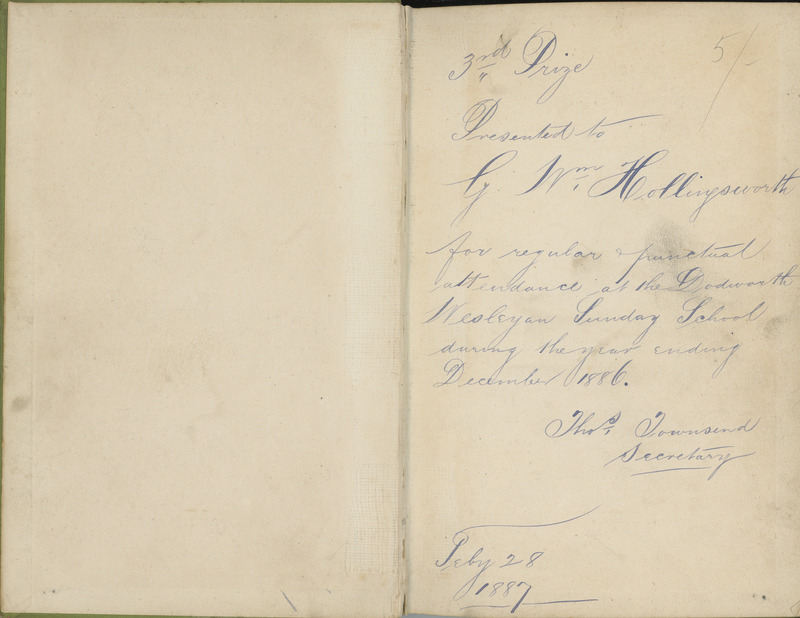 5/-
3rd Prize
Presented to
G. Wm Hollingsworth
for regular & punctual
attendance at the Dodworth
Wesleyan Sunday School
during the year ending
December 1886.
Thos Townsend
Secretary
Feby 28
1887